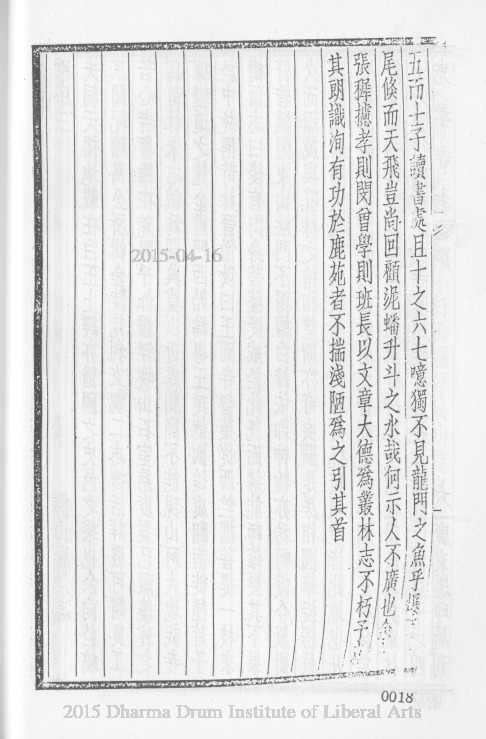 五而士子讀書處且十之六七噫獨不見龍門之魚乎爆
尾倐而天飛豈尚回顧泥蟠升斗之水哉何示人不廣也
張穉攄孝則閔曾學則班長以文章大德爲叢林志不朽子
其朗識洵有功於鹿苑者不揣淺陋爲之引其首
2015-04-16
0018
2015 Dharma Drum Institute of Liberal Arts